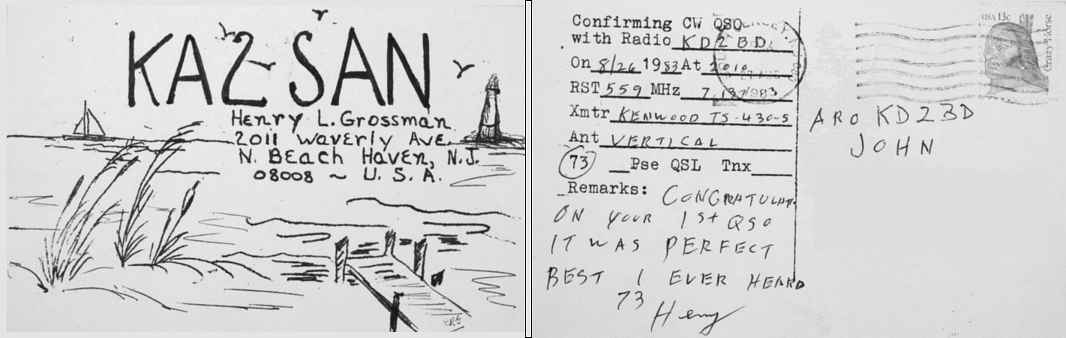 KA2SAN
Henry L. Grossman
2011 Waverly Ave.
N. Beach Haven, N.J.
08008 ~ U.S.A.
Confirming CW QSO
with Radio KD2BD
On 8/26 1983 At 2010
RST 559 MHz 7.137
Xmtr KENWOOD TS-430-S
Ant VERTICAL
73 __Pse QSL Tnx__
_Remarks: CONGRATULAT.
ON YOUR 1st QSO
IT WAS PERFECT
BEST I EVER HEARD
73
Henry
USA 13c
Crazy Horse
ARO KD2BD
JOHN